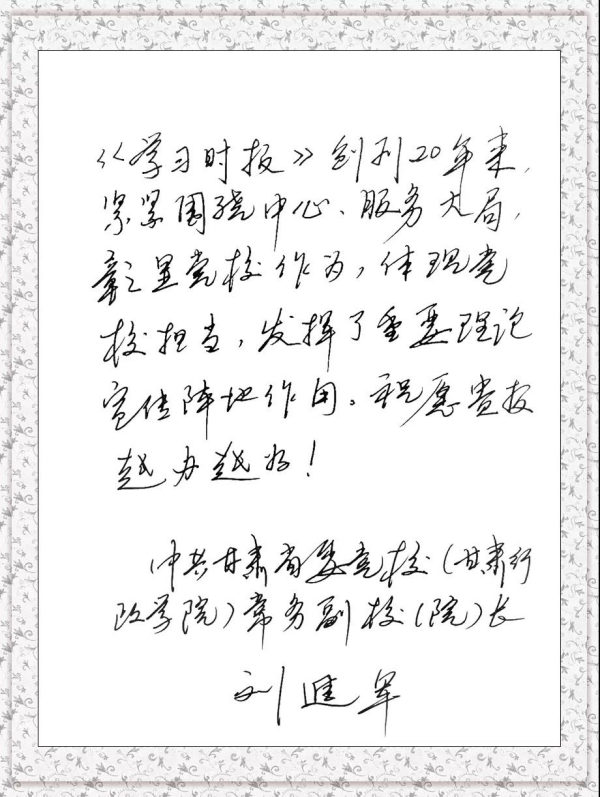 《学习时报》创刊20年来，
紧紧围绕中心、服务大局，
彰显党校作为，体现党
校担当，发挥了重要理论
宣传阵地作用。祝愿贵报
越办越好！
中共甘肃省委党校（甘肃行
政学院）常务副校（院）长
刘进军